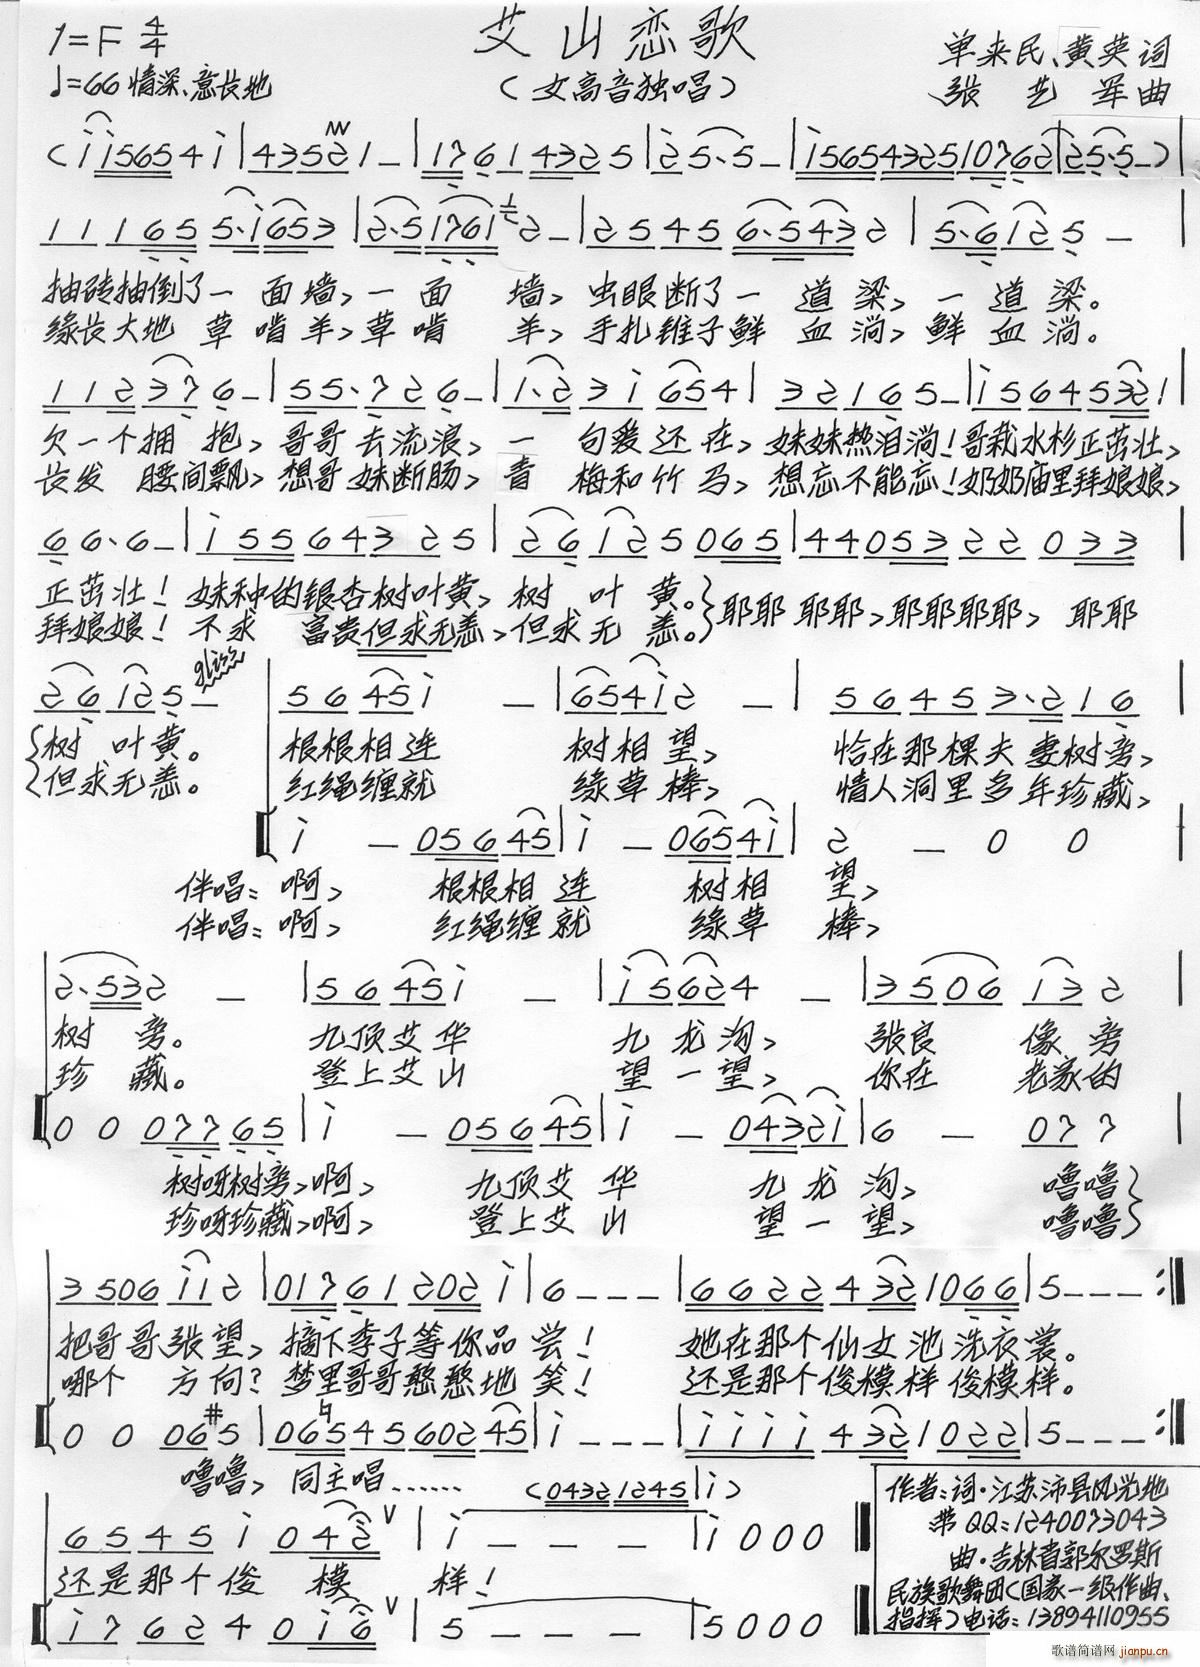 艾山恋歌
1=F 4/4
♩=66 情深、意长地
（女高音独唱）
单来民、黄英 词
张艺军 曲
抽砖抽倒了一面墙,一面墙,虫眼断了一道梁,一道梁。
缘长大地草啃羊,草啃羊,手扎锥子鲜血淌,鲜血淌。
欠一个拥抱,哥哥去流浪,一句爱还在,妹妹热泪淌!哥栽水杉正茁壮,
长发腰间飘,想哥妹断肠,青梅和竹马,想忘不能忘!奶奶庙里拜娘娘,
正茁壮!妹种的银杏树叶黄,树叶黄。耶耶耶耶,耶耶耶耶,耶耶
拜娘娘!不求富贵但求无恙,但求无恙。
gliss
树叶黄。根根相连树相望,恰在那棵夫妻树旁,
但求无恙。红绳缠就缘草棒,情人洞里多年珍藏,
伴唱:啊,根根相连树相望,
伴唱:啊,红绳缠就缘草棒,
树旁。九顶艾华九龙沟,张良像旁
珍藏。登上艾山望一望,你在老家的
树呀树旁,啊,九顶艾华九龙沟,噜噜
珍呀珍藏,啊,登上艾山望一望,噜噜
把哥哥张望,摘下李子等你品尝!她在那个仙女池洗衣裳。
哪个方向?梦里哥哥憨憨地笑!还是那个俊模样俊模样。
噜噜,同主唱……
还是那个俊模样!
作者:词·江苏沛县风光地
带QQ:1240073043
曲·吉林省郭尔罗斯
民族歌舞团（国家一级作曲、
指挥）电话:13894110955
歌谱简谱网 jianpu.cn